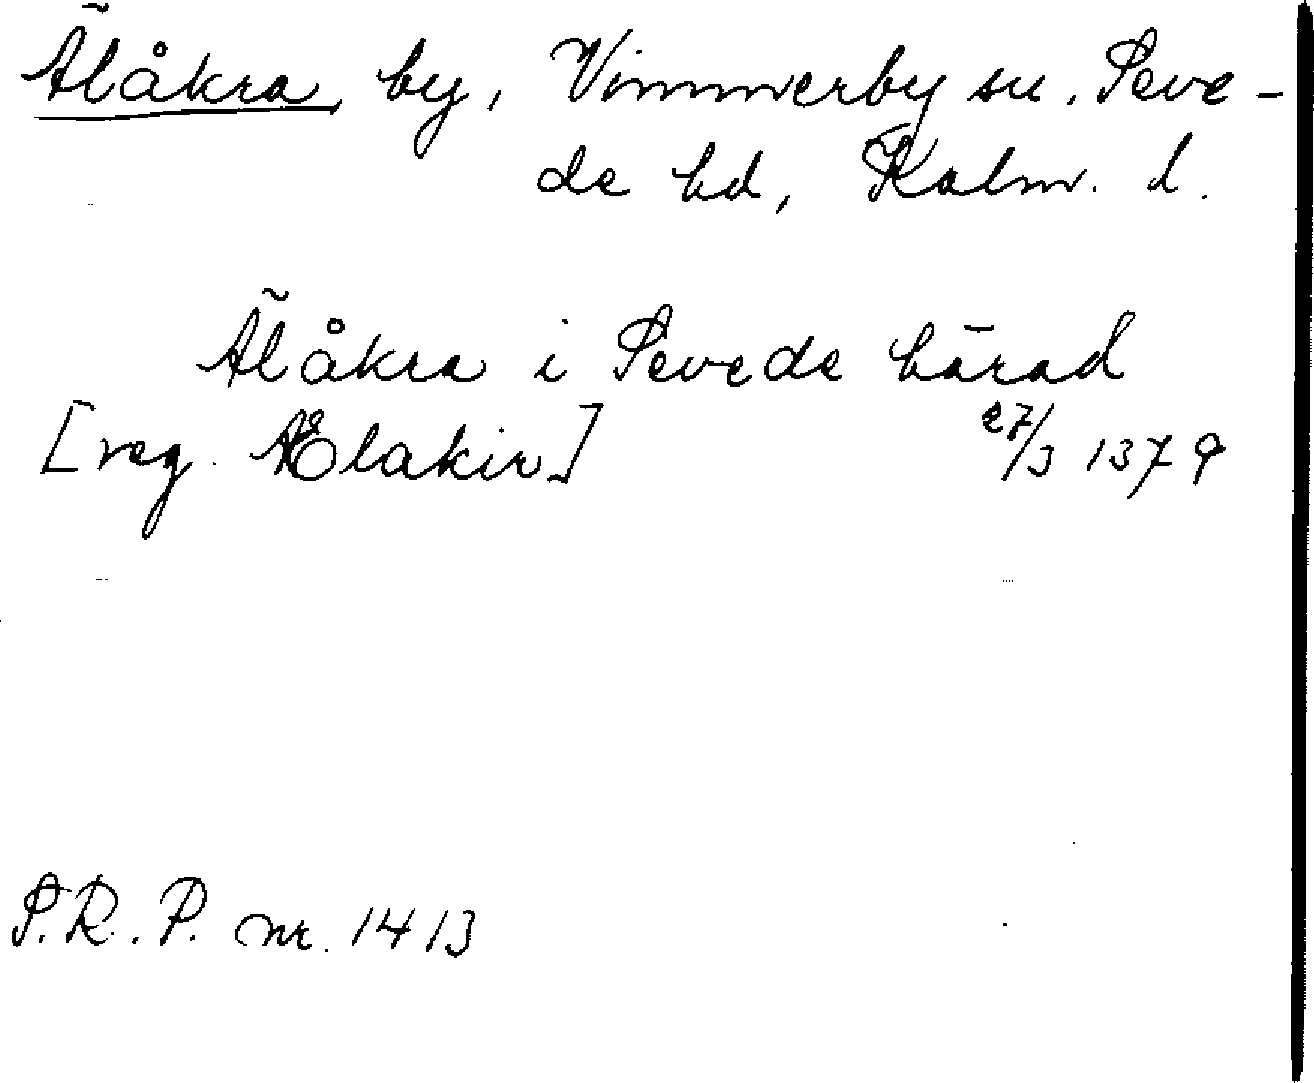 Älåkra, by, Vimmerby sn. Seve-
de hd, Kalm. l.
Älåkra i Sevede härad
[reg. Ælakir] 27/3 1379
S.R.P. nr. 1413